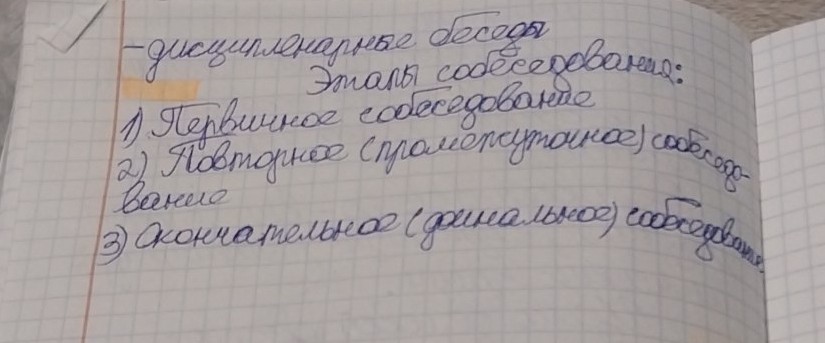 - дисципленарные беседы
Этапы собеседования:
1) Первичное собеседование
2) Повторное (промежуточное) собеседо-
вание
3) Окончательное (финальное) собеседование